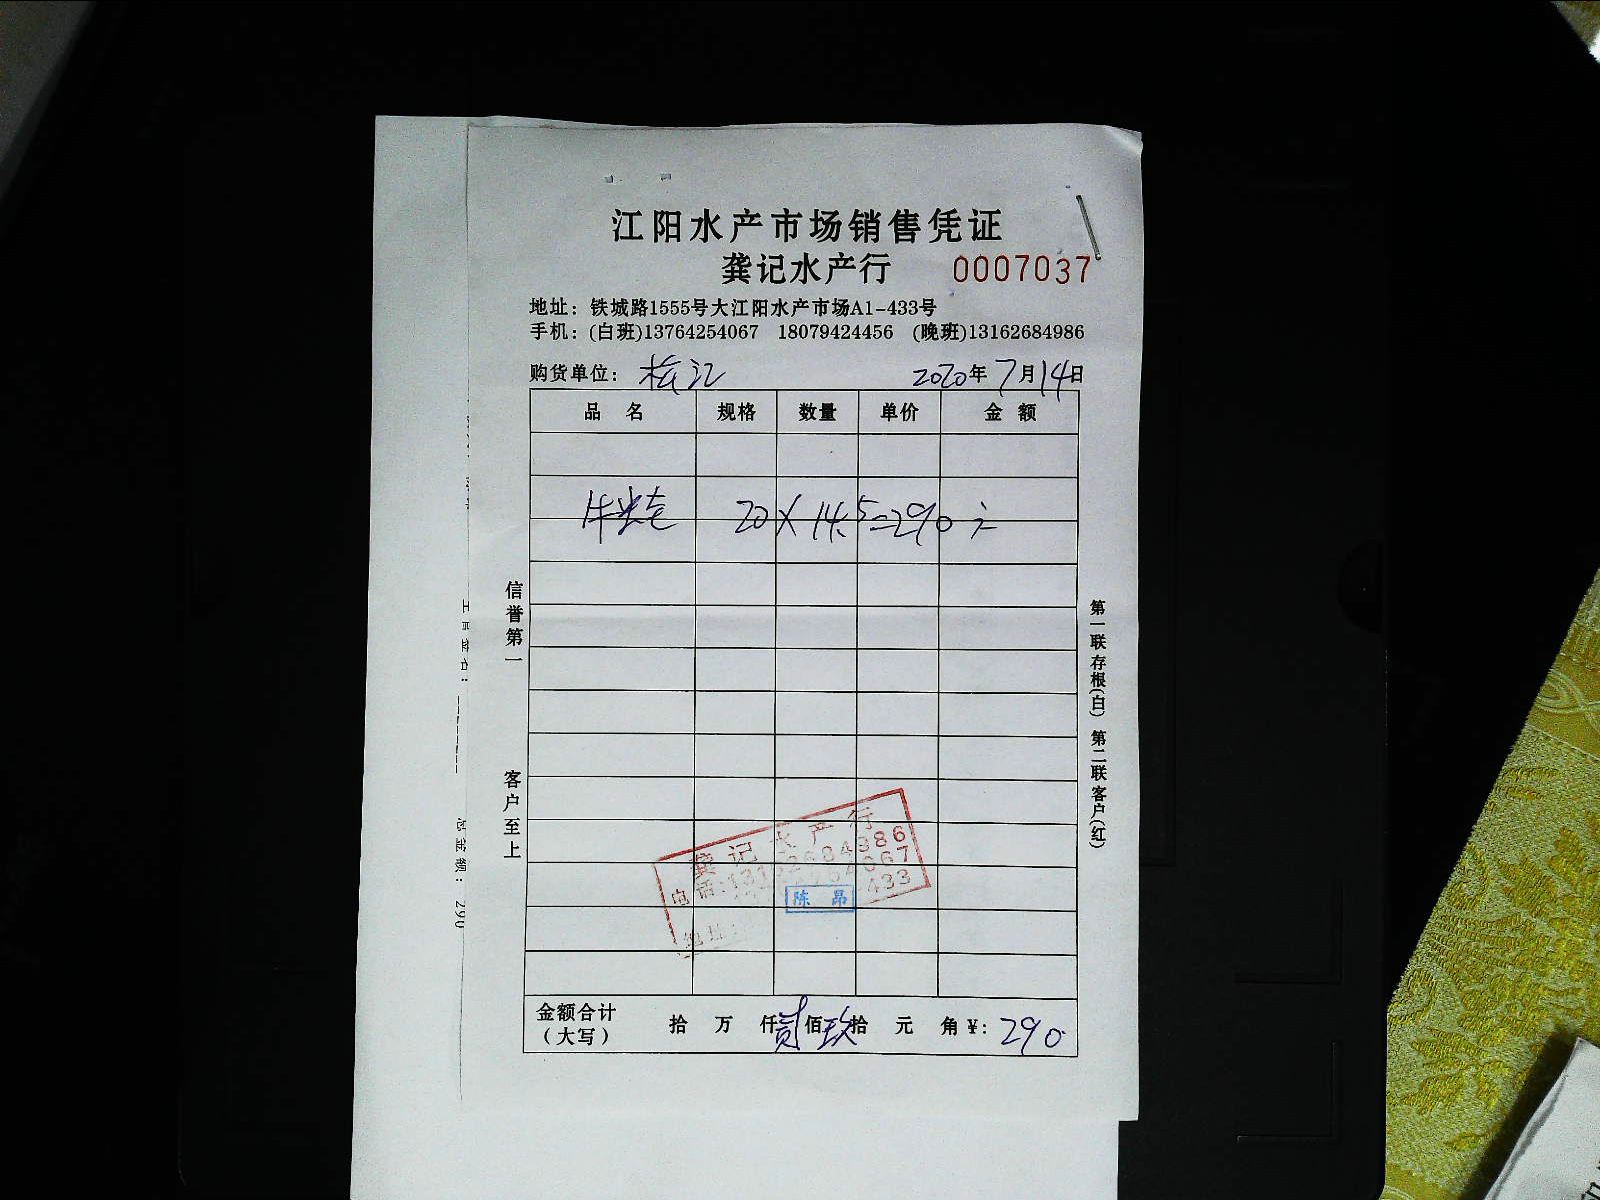 江阳水产市场销售凭证
龚记水产行 0007037
地址：铁城路1555号大江阳水产市场A1-433号
手机：(白班)13764254067 18079424456 (晚班)13162684986
购货单位： 2020年7月14日
品名 规格 数量 单价 金额
20×14.5=290元
信誉第一 客户至上
第一联存根(白) 第二联客户(红)
龚记水产行
电话:
433
陈昂
金额合计(大写) 拾 万 仟 贰佰 玖拾 元 角 ¥: 290
总金额: 290